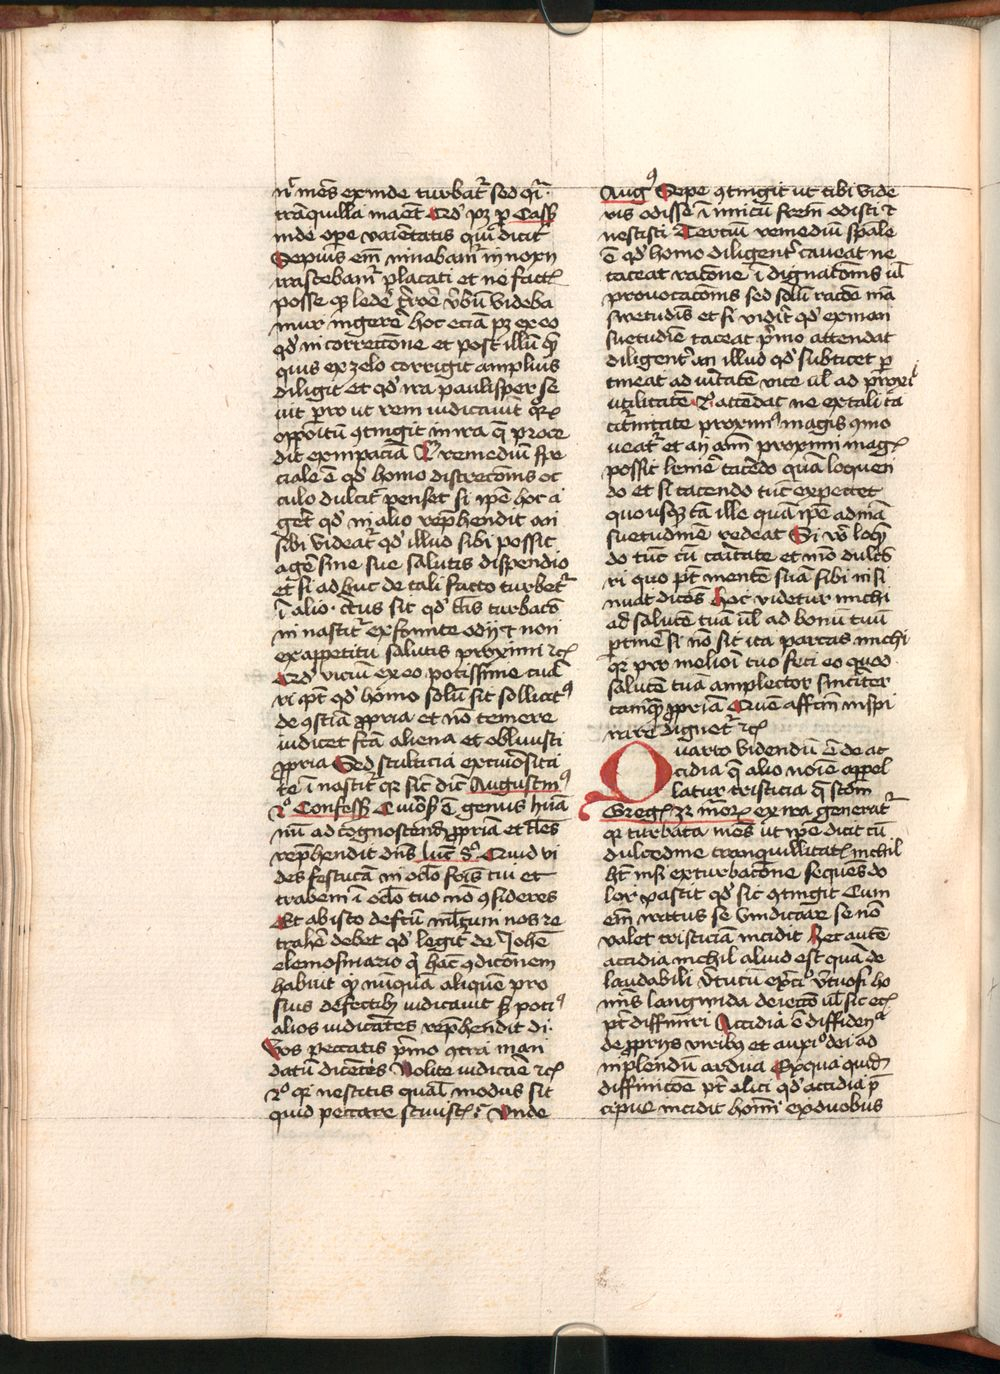 nr̄ mēs exinde turbat᷑ sed q̄i
trāquilla maēt Ɛrđ pꝫ ꝑ Cassꝫ
inde ope vaīetatis qui dicit
Sepius em̄ minabam᷑ in noxī
irascebam᷑ placati et ne fact᷑
posse
mur ingere hoc eciā pꝫ ex eo
qđ in correctione et post illū qꝫ
quis ex zelo corrigit amplius
diligit et qđ ira paulisper se
uit pro ut rem iudicauit
oppoītū ꝯtingit in ira q̄ proce
dit ex inpaciā remediū spe
ciale ē qđ homo discrecōnis oc
culo dulcit᷑ penset si ip̄e hoc a
get᷑ qđ in alio rep̄hendit an
sibi videat᷑ qđ illud sibi possit
agē sine sue salutis dispendio
et si adhuc de tali facto turbet᷑
ī alio ctus sit qđ tl̄is turbacō
in nascit᷑ ex fomite odij et non
ex appetitu salutis proximi ꝛc̄
vicīū ex eo potissime cuā
ri pt̄ qđ homo solū sit sollicitꝰ
de ꝯsciā ꝓpria et nō temere
iudicet fc̄ā aliena et obliuisci
ꝓpria Sed stulticia ex cuiositā
te ī nascit᷑ qꝛ sic᷑ dic̄ Augustinꝰ
Confessꝫ Cuiōsꝫ ē genus huā
nū ad cognoscendꝫ ꝓpriā et
rep̄hendit dn̄s luc̄ Quid vi
des festucā in oclō fr̄is tui et
trabem ī oclō tuo nō ꝯsideres
Et ab isto defc̄tū nos re
trahē debet qđ legit᷑ de Johē
elemosinario q̄ hāc ꝯdicōnem
habuit qđ nūquā aliquē pro
suis defectibꝫ iudicauit sꝫ pociꝰ
alios iudicātes rep̄hendit di
Vos peccatis p̄mo ꝯtra man
datū dicētes Nolite iudicāe ꝛc̄
2º qꝛ nescitis qual̄ modus sit
quid peccare Vnde
Augꝰ Sepe ꝯtingit ut tibi vide
ris odisse īimicū frēm odisti ⁊
nescisti Terciū remediū sp̄ale
ē qđ homo diligent᷑ caueat ne
taceat racōne ī dignacōnis ul̄
prouocacōnis sed solū racōe mā
swetudīs et si vidīt qđ ex man
suetudīe taceat p̄mo attendat
diligent᷑ an illud qđ subticet ꝑ
tineat ad vitatē vite ul̄ ad proxi
utilitatē 2º attēdat ne ex tali tā
cit᷑nitate proximꝰ magis ꝯmo
ueat᷑ et an animū proximi mag᷑
possit lenīē tacēdo quā loquen
do et si tacendo tūc expectet
quousqꝫ tā ille quā ip̄e ad mā
suetudīnē redeat Si vō loqn̄
do tūc cū caitate et mō dulco
ri quo pt̄ mentē suā sibi insi
nuat dicēs Hoc videtur michi
ad salutē tuā ul̄ ad bonū tuū
ꝑtinē si nō sit ita parcas michi
qꝛ pro meliori tuo feci eo quod
salutē tuā amplector sinc̄iter
tamqꝫ ꝓpriā Quē affc̄m inspi
rare dignet᷑ ꝛc̄
Quarto videndū ē de ac
cidia q̄ alio noīe appel
latur tristicia q̄ scdm̄
Greg᷑ ex ira generat᷑
qꝛ turbata mēs ut ip̄e dicit cū
dulcedine tranquillitat᷑ nichil
ht̄ nisi ex turbacōne sequēs do
lor vascit qđ sic ꝯtingit Cum
em̄ iratus se vindicare se nō
valet tristiciā incidit Hec autē
accidia nichil aliud est quā de
laudabili v̄tutū exc̄cio v̄tuosi ho
mīs languida deiectō ul̄ sic ec᷑
pt̄ diffiniri Accidia ē diffidencia
de ꝓprijs viribꝫ et auxiº dei ad
inplendū ardua Ex qua quidē
diffinitōe pt̄ elici qđ accidia p̄
cipue incidit homī ex duobus